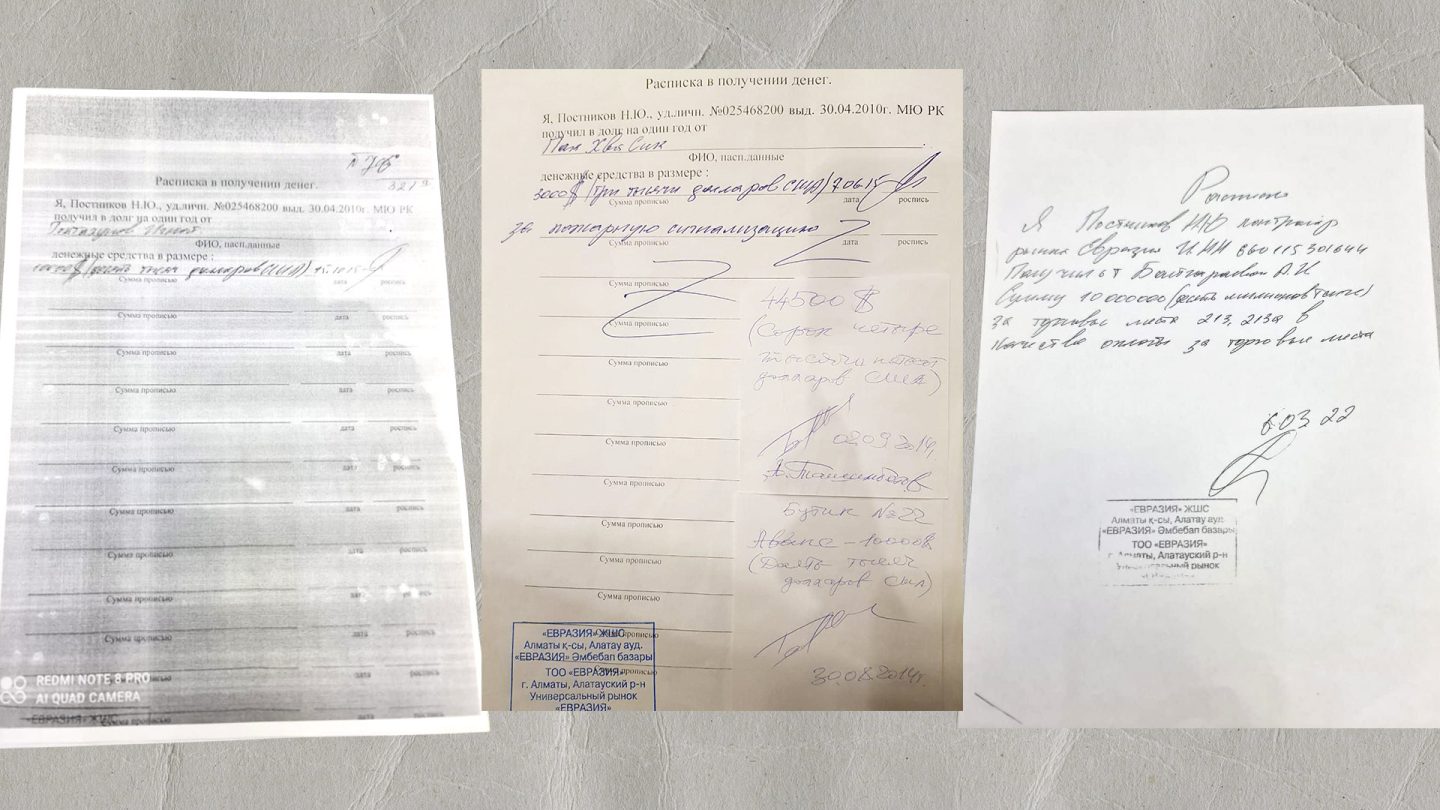 N 76
Расписка в получении денег.
Я, Постников Н.Ю., уд.личн. №025468200 выд. 30.04.2010г. МЮ РК
получил в долг на один год от
ФИО, насп.данные
денежные средства в размере :
(десять тысяч долларов США)
Сумма прописью дата роспись
Сумма прописью дата роспись
Сумма прописью дата роспись
Сумма прописью дата роспись
Сумма прописью дата роспись
Сумма прописью дата роспись
Сумма прописью дата роспись
Сумма прописью дата роспись
Сумма прописью дата роспись
Сумма прописью
Сумма прописью дата роспись
Сумма прописью дата роспись
Сумма прописью
REDMI NOTE 8 PRO
AI QUAD CAMERA
«ЕВРАЗИЯ» ЖШС
Расписка в получении денег.
Я, Постников Н.Ю., уд.личн. №025468200 выд. 30.04.2010г. МЮ РК
получил в долг на один год от
Пак Хва Сик
ФИО, насп.данные
денежные средства в размере :
3000$ (три тысячи долларов США) 7.06.15
Сумма прописью дата роспись
за пожарную сигнализацию
дата роспись
Сумма прописью
Сумма прописью
Сумма прописью
Сумма прописью
Сумма прописью
Сумма прописью
Сумма прописью
Сумма прописью
Сумма прописью
Сумма прописью
Сумма прописью
44500 $
(Сорок четыре
тысячи пятьсот
долларов США)
02.09.2014г.
Бутик №22
Аванс - 10000$
(Десять тысяч
долларов США)
30.08.2014г.
«ЕВРАЗИЯ» ЖШС
Алматы қ-сы, Алатау ауд.
«ЕВРАЗИЯ» Әмбебап базары
ТОО «ЕВРАЗИЯ»
г. Алматы, Алатауский р-н
Универсальный рынок
«ЕВРАЗИЯ»
Расписка
Я Постников НЮ контролер
рынка Евразия ИИН 860115301644
Получил от А.И.
Сумму 10 000 000 (десять миллионов тенге)
за торговые места 213, 213а в
качестве оплаты за торговые места
6 03 22
«ЕВРАЗИЯ» ЖШС
Алматы қ-сы, Алатау ауд.
«ЕВРАЗИЯ» Әмбебап базары
ТОО «ЕВРАЗИЯ»
г. Алматы, Алатауский р-н
Универсальный рынок